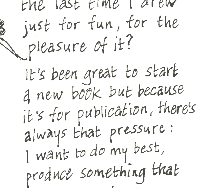 the last time I drew
just for fun, for the
pleasure of it?
It's been great to start
a new book but because
it's for publication, there's
always that pressure:
I want to do my best,
produce something that